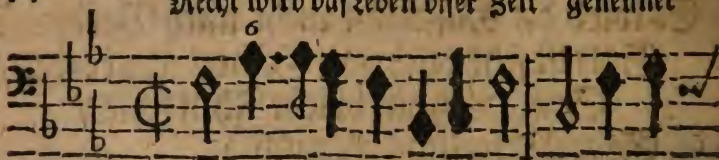 Recht wird das Leben diser Zeit genennet
6